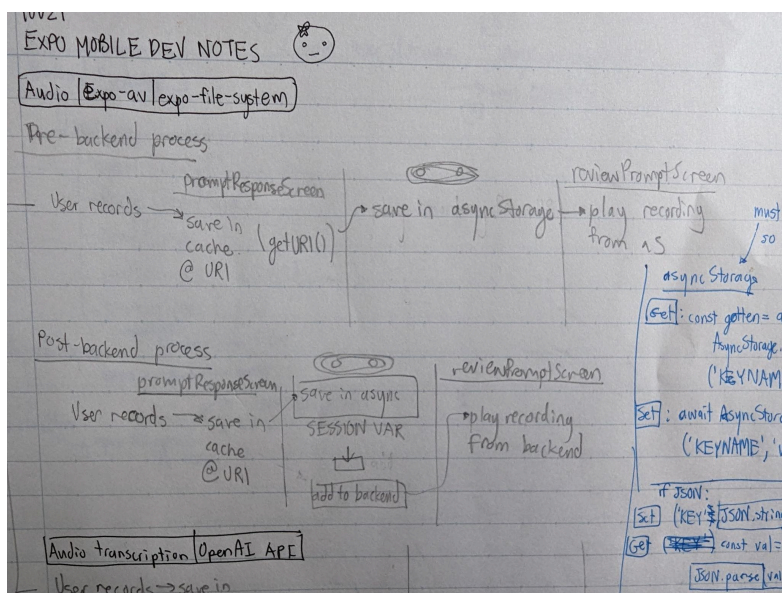 EXPO MOBILE DEV NOTES
Audio | Expo-av | expo-file-system
Pre-backend process
promptResponseScreen
reviewPromptScreen
User records → save in cache @ URI (getURI()) → save in asyncStorage → play recording from AS
must
so
asyncStorage
Get: const gotten = a
AsyncStorage.
('KEYNAM
Set: await AsyncStora
('KEYNAME', 'v
if JSON:
Set ('KEY', JSON.string
Get const val =
JSON.parse(val
Post-backend process
promptResponseScreen
reviewPromptScreen
User records → save in cache @ URI
save in async
SESSION VAR
add to backend
play recording from backend
Audio transcription | OpenAI API
User records → save in